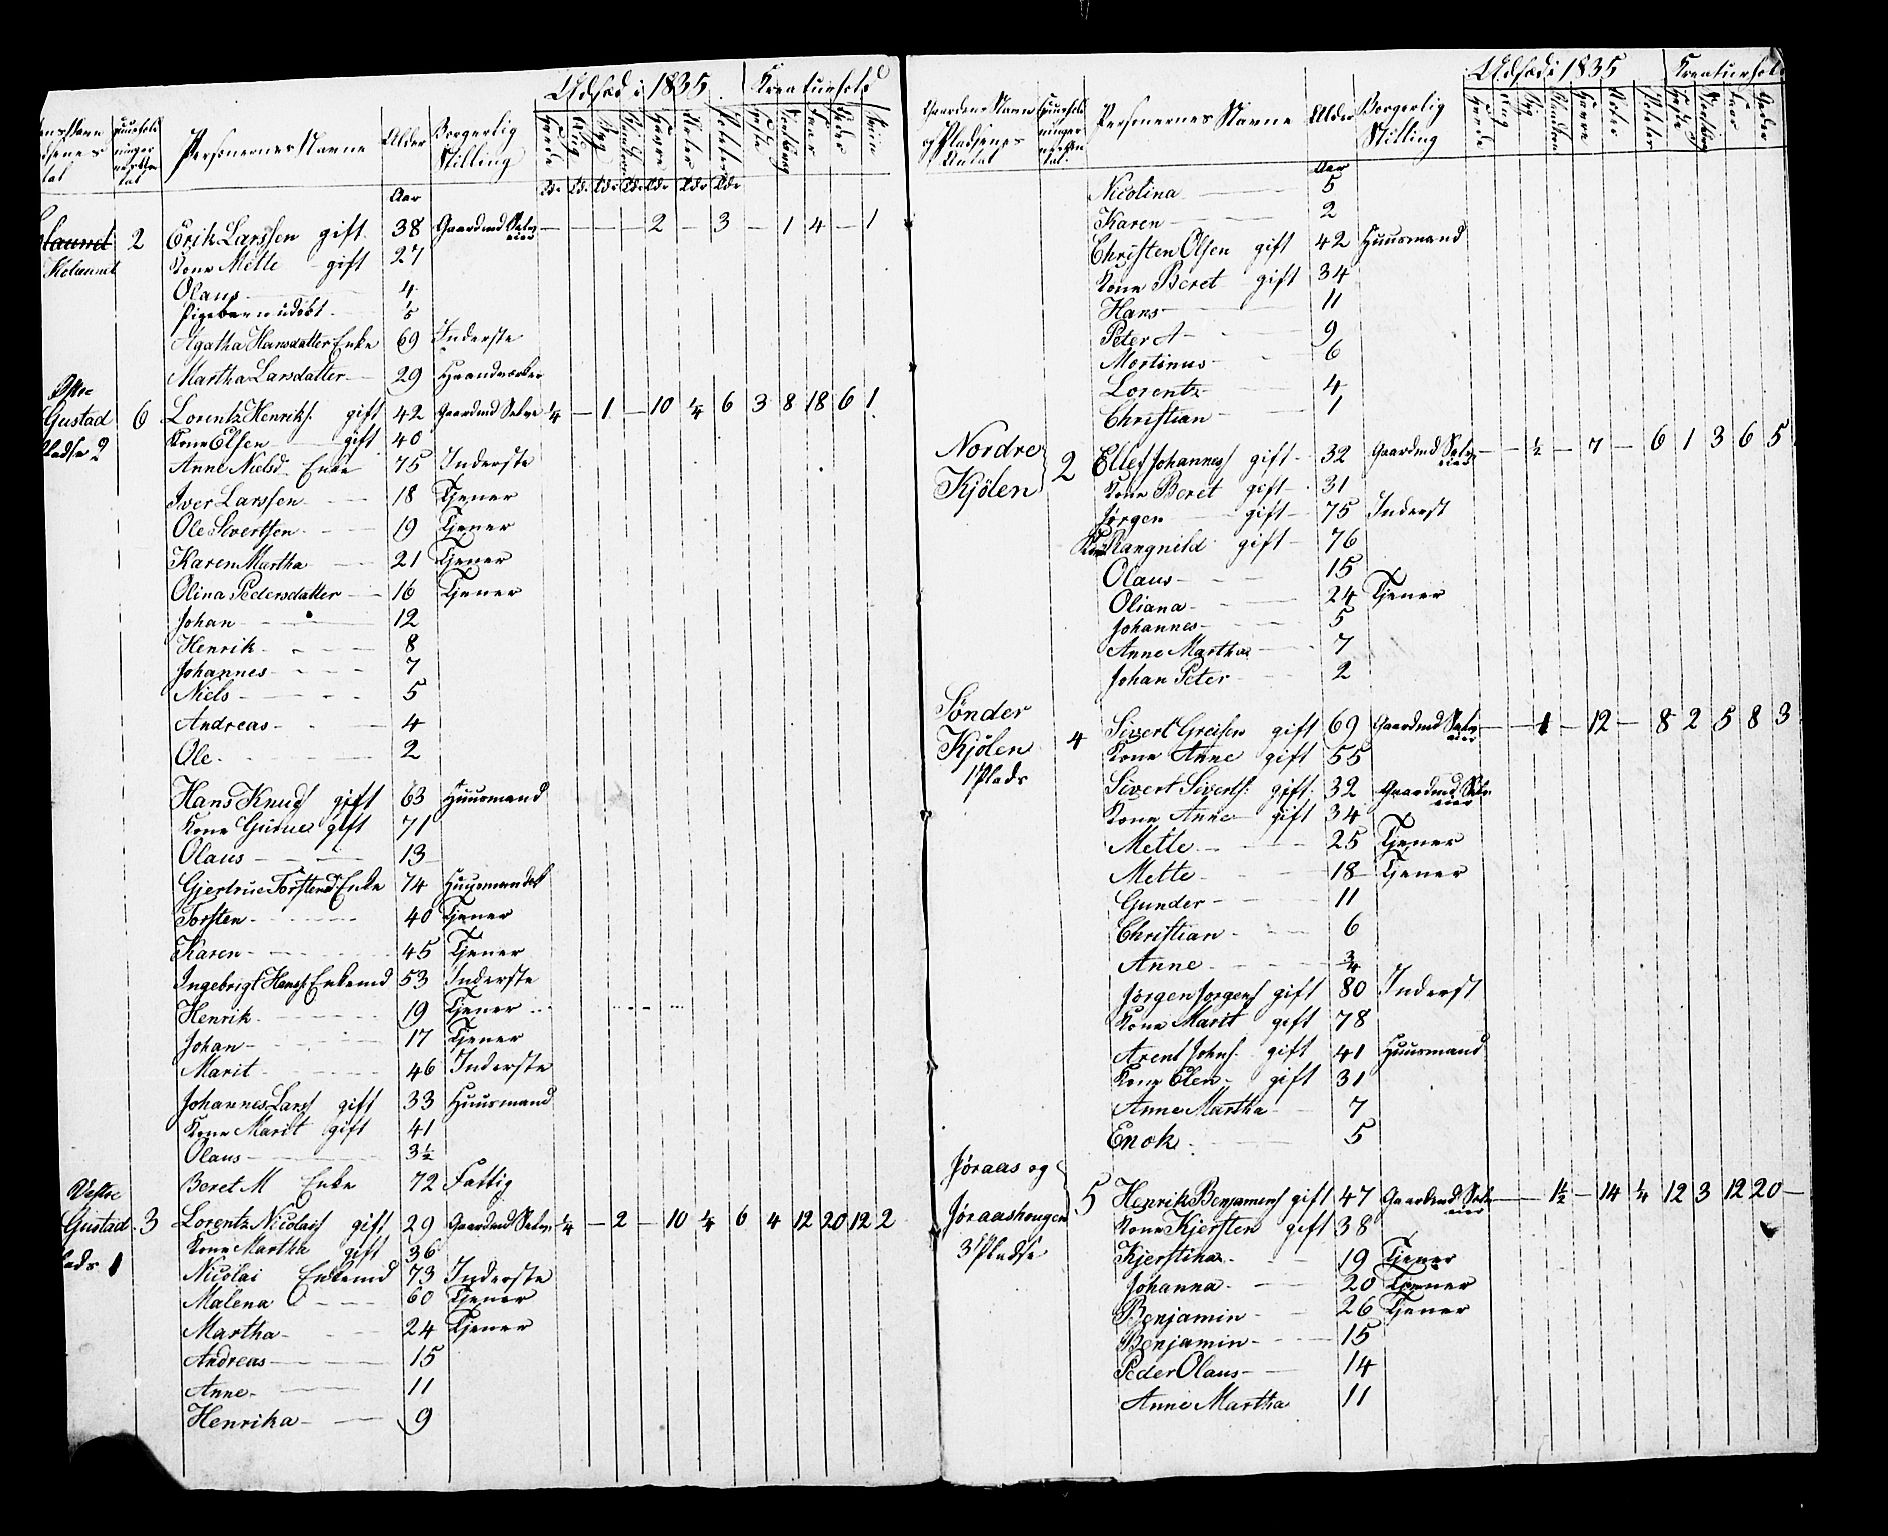 Personernes Navne Alder Borgerlig Stilling Udsæd i 1835 Kreaturhold
Aar
2 Erik Larssen gift 38 Gaardmd Selveier - - - - 2 - 3 - 1 4 - 1
Kone Mette gift 27
Olaus 4
Pigebarn udøbt
Agatha Hansdatter Enke 69 Inderste
Martha Larsdatter 29 Haandværker
Østre
Gustad 6 Lorentz Henriks. gift 42 Gaardmd Selve ¼ - 1 - 10 ¼ 6 3 8 18 6 1
Pladse 2 Kone Elsen gift 40
Anne Nielsd. Enke 75 Inderste
Iver Larssen 18 Tjener
Ole Sivertsen 19 Tjener
Karen Martha 21 Tjener
Olina Pedersdatter 16 Tjener
Johan 12
Henrik 8
Johannes 7
Niels 5
Andreas 4
Ole 2
Hans Knuds gift 63 Huusmand
Kone Gurue gift 71
Olaus 13
Gjertrue Torstensd Enke 74 Huusmandsk
Torsten 40 Tjener
Karen 45 Tjener
Ingebrigt Hans. Enkemd 53 Inderste
Henrik 19 Tjener
Johan 17 Tjener
Marit 46 Inderste
Johannes Lars gift 33 Huusmand
Kone Marit gift 41
Olaus 3½
Beret M Enke 72 Fattig
Vestre
Gustad 3 Lorentz Nicolais gift 29 Gaardmd Selv. ¼ - 2 - 10 ¼ 6 4 12 20 12 2
Plads 1 Kone Martha gift 36
Nicolai Enkemd 73 Inderste
Malena 60 Tjener
Martha 24 Tjener
Andreas 15
Anne 11
Henrika 9
Gaardenes Navn og Pladsenes Antal Personernes Navne Alder Borgerlig Stilling Udsæd i 1835 Kreaturhold
Aar
Nicolina 5
Karen 2
Christen Olsen gift 42 Huusmand
Kone Beret gift 34
Hans 11
Peter A 9
Mortinus 6
Lorentz 4
Christian 1
Nordre
Kjölen 2 Ellef Johannes gift 32 Gaardmd Selveier - - ½ - 7 - 6 1 3 6 5
Kone Beret gift 31
Jörgen gift 75 Inderst
Kone Rangnild gift 76
Olaus 15
Oliana 24 Tjener
Johannes 5
Anne Martha 7
Johan Peter 2
Sönder
Kjölen 4 Sivert Greisen gift 69 Gaardmd Selveier - - 1 - 12 - 8 2 5 8 3
1 Plads Kone Anne gift 55
Sivert Siverts. gift 32 Gaardmd Selveier
Kone Anne gift 34
Mette 25 Tjener
Mette 18 Tjener
Gunder 11
Christian 6
Anne ¾
Jörgen Jorgens gift 80 Inderst
Kone Marit gift 78
Arent Johns. gift 41 Huusmand
Kone Elen gift 31
Anne Martha 7
Enok 5
Jöraas og
Jöraashougen 5 Henrik Benjamens gift 47 Gaardmd Selveier - - 1½ - 14 ¼ 12 3 12 20 -
3 Pladse Kone Kjersten gift 38
Kjerstina 19 Tjener
Johanna 20 Tjener
Benjamin 26 Tjener
Benjamin 15
Peder Olaus 14
Anne Martha 11